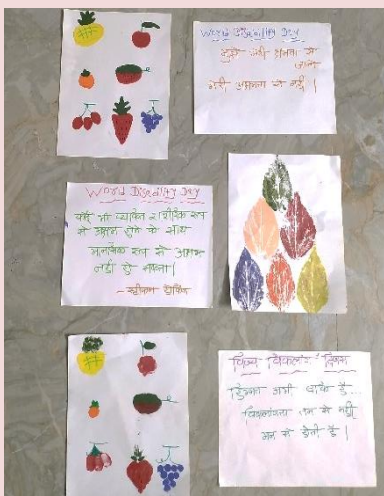 World Disability Day
मुझे मेरी क्षमता से
जानो
मेरी अक्षमता से नहीं।
World Disability Day
कोई भी व्यक्ति शारीरिक रूप
से अक्षम होने के साथ
मानसिक रूप से अक्षम
नहीं हो सकता।
- स्टीफन हॉकिंग
विश्व विकलांग दिवस
हिम्मत अभी बाकि है...
विकलांगता तन से नहीं
मन से होती है।